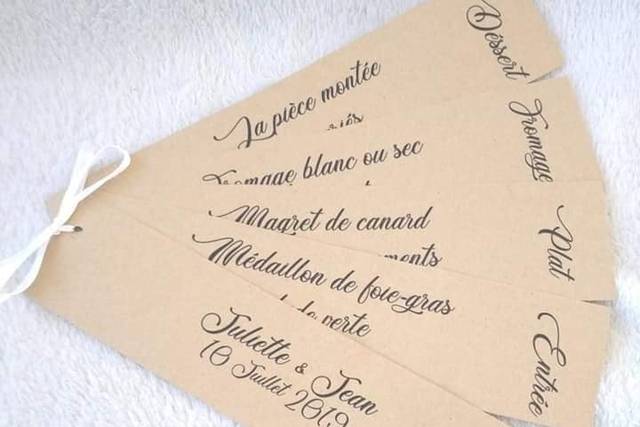 Déssert
La pièce montée
Fromage
Fromage blanc ou sec
Plat
Magret de canard
Entrée
Médaillon de foie-gras
Juliette & Jean
10 Juillet 2019